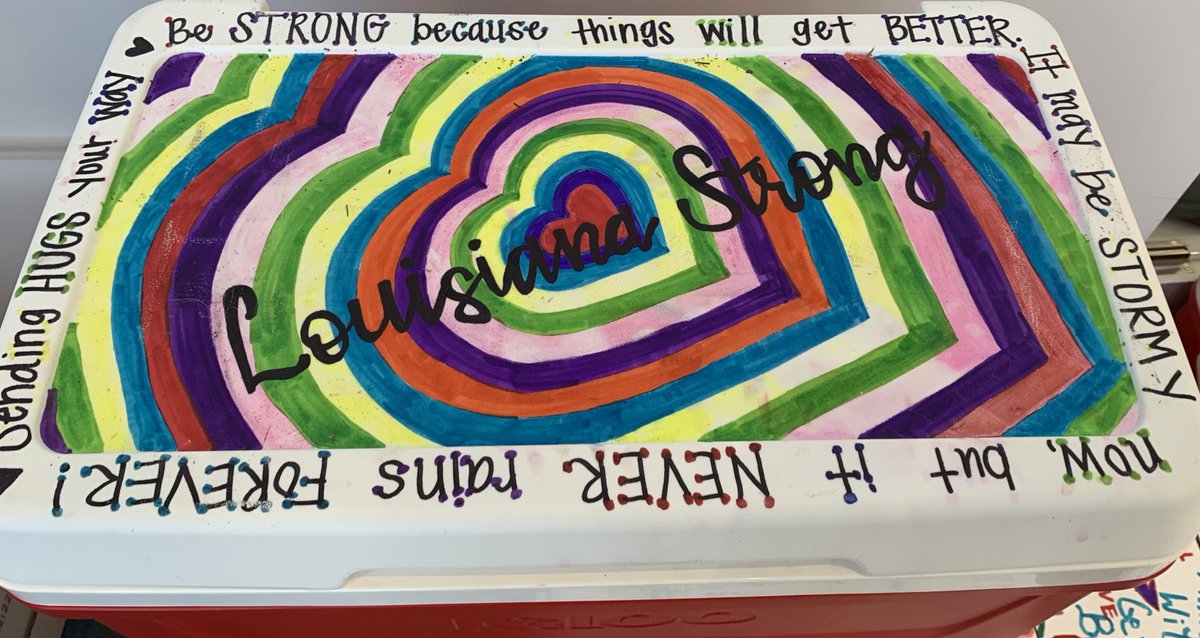 Be STRONG because things will get BETTER.
It may be STORMY
now, but it NEVER rains FOREVER!
Sending HUGS your way
Louisiana Strong